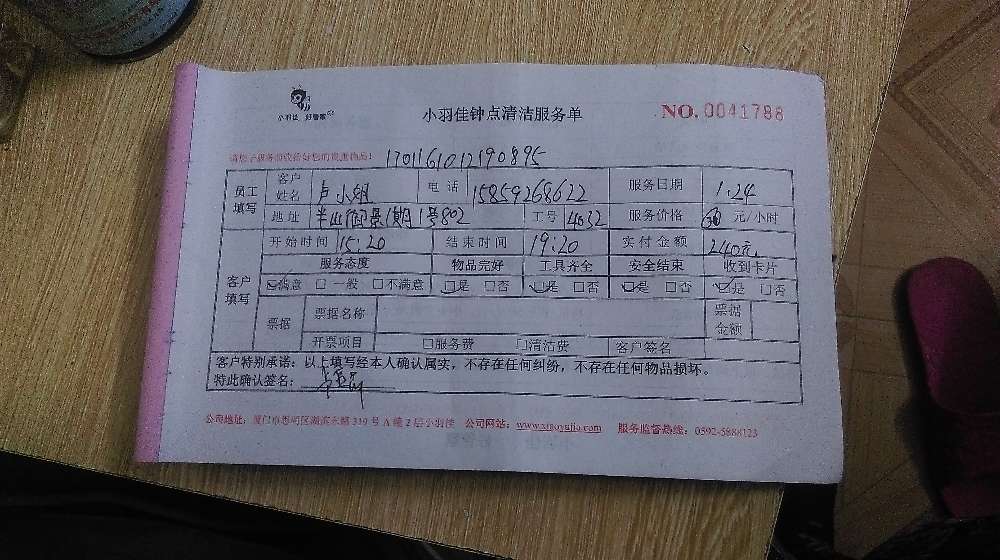 小羽佳 好管家
小羽佳钟点清洁服务单
NO. 0041788
1701161012190895
员工填写 客户姓名 卢小姐 电话 15859268622 服务日期 1.24
地址 半山御景1期1号802 工号 4032 服务价格 60 元/小时
客户填写 开始时间 15:20 结束时间 19:20 实付金额 240元
服务态度 物品完好 工具齐全 安全结束 收到卡片
☑满意 □一般 □不满意 ☑是 □否 ☑是 □否 ☑是 □否 ☑是 □否
票据 票据名称 票据金额
开票项目 □服务费 □清洁费 客户签名
客户特别承诺：以上填写经本人确认属实，不存在任何纠纷，不存在任何物品损坏。
特此确认签名：
公司地址：厦门市思明区湖滨东路319号A幢2层小羽佳 公司网站：www.xiaoyujia.com 服务监督热线：0592-5888123